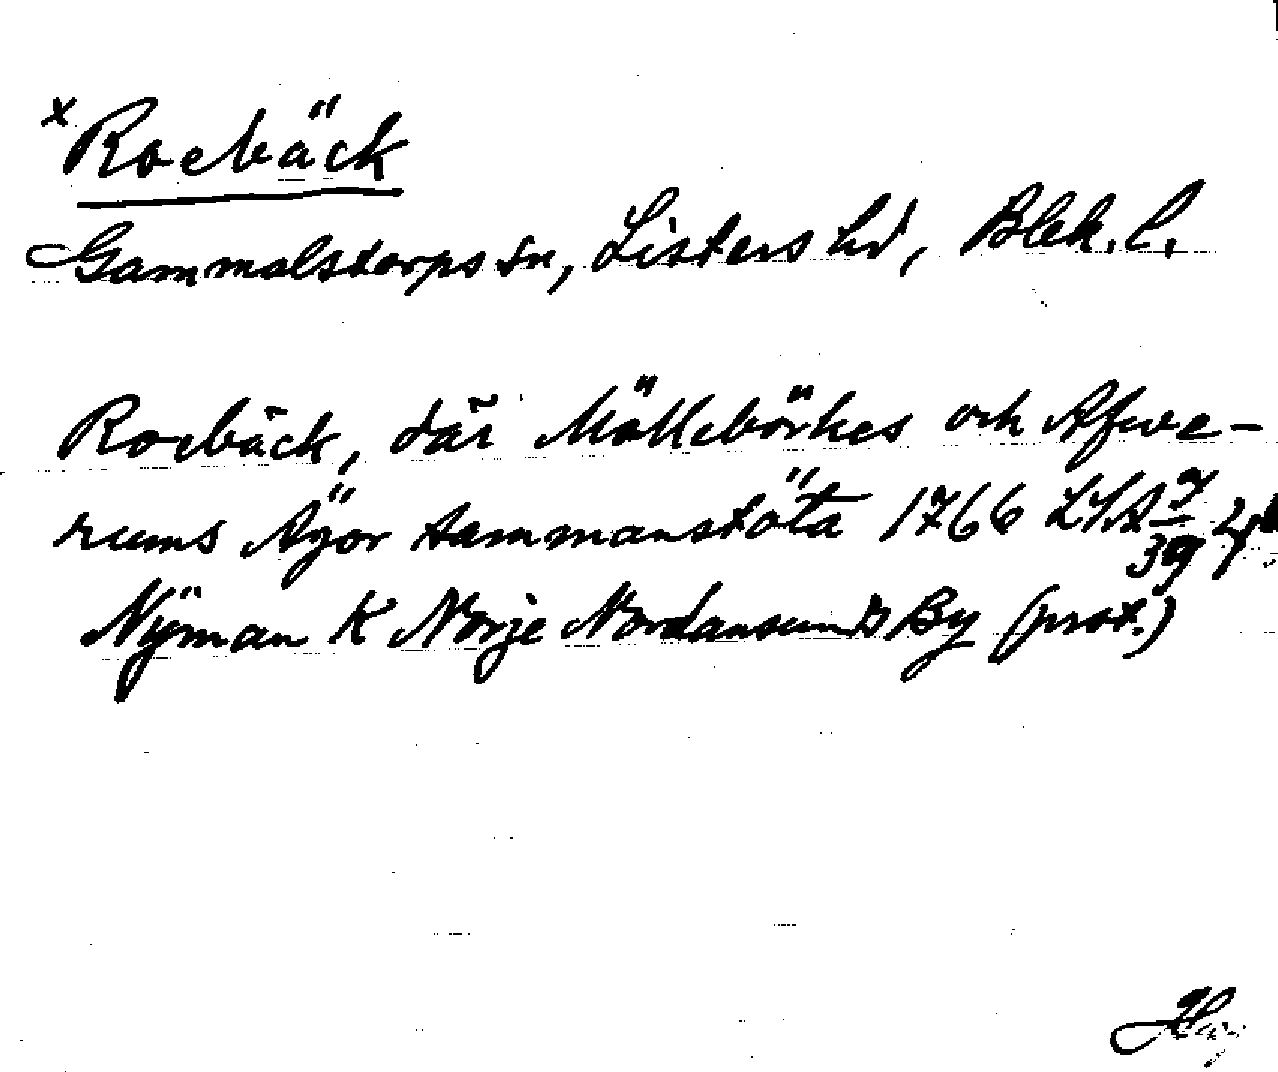 x Roebäck
Gammalstorps sn, Listers hd, Blek. l.
Roebäck, där Möllebörkes och Afwe-
rums Ägor sammanstöta 1766 LSA
Nÿman K Norje Nordansunds By (prot.)